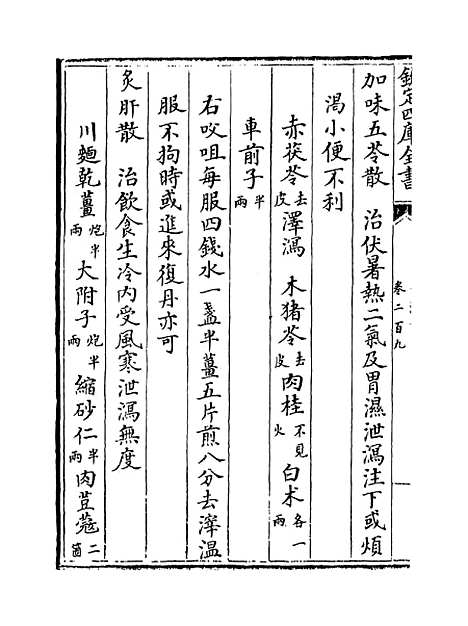 欽定四庫全書
卷二百九
加味五苓散　治伏暑熱二氣及胃濕泄瀉注下或煩
渴小便不利
赤茯苓去皮　澤瀉　木猪苓去皮　肉桂不見火　白朮各一兩
車前子半兩
右㕮咀每服四錢水一盞半薑五片煎八分去滓溫
服不拘時或進來復丹亦可
炙肝散　治飲食生冷內受風寒泄瀉無度
川麵乾薑炮半兩　大附子炮半兩　縮砂仁半兩　肉荳蔻二箇